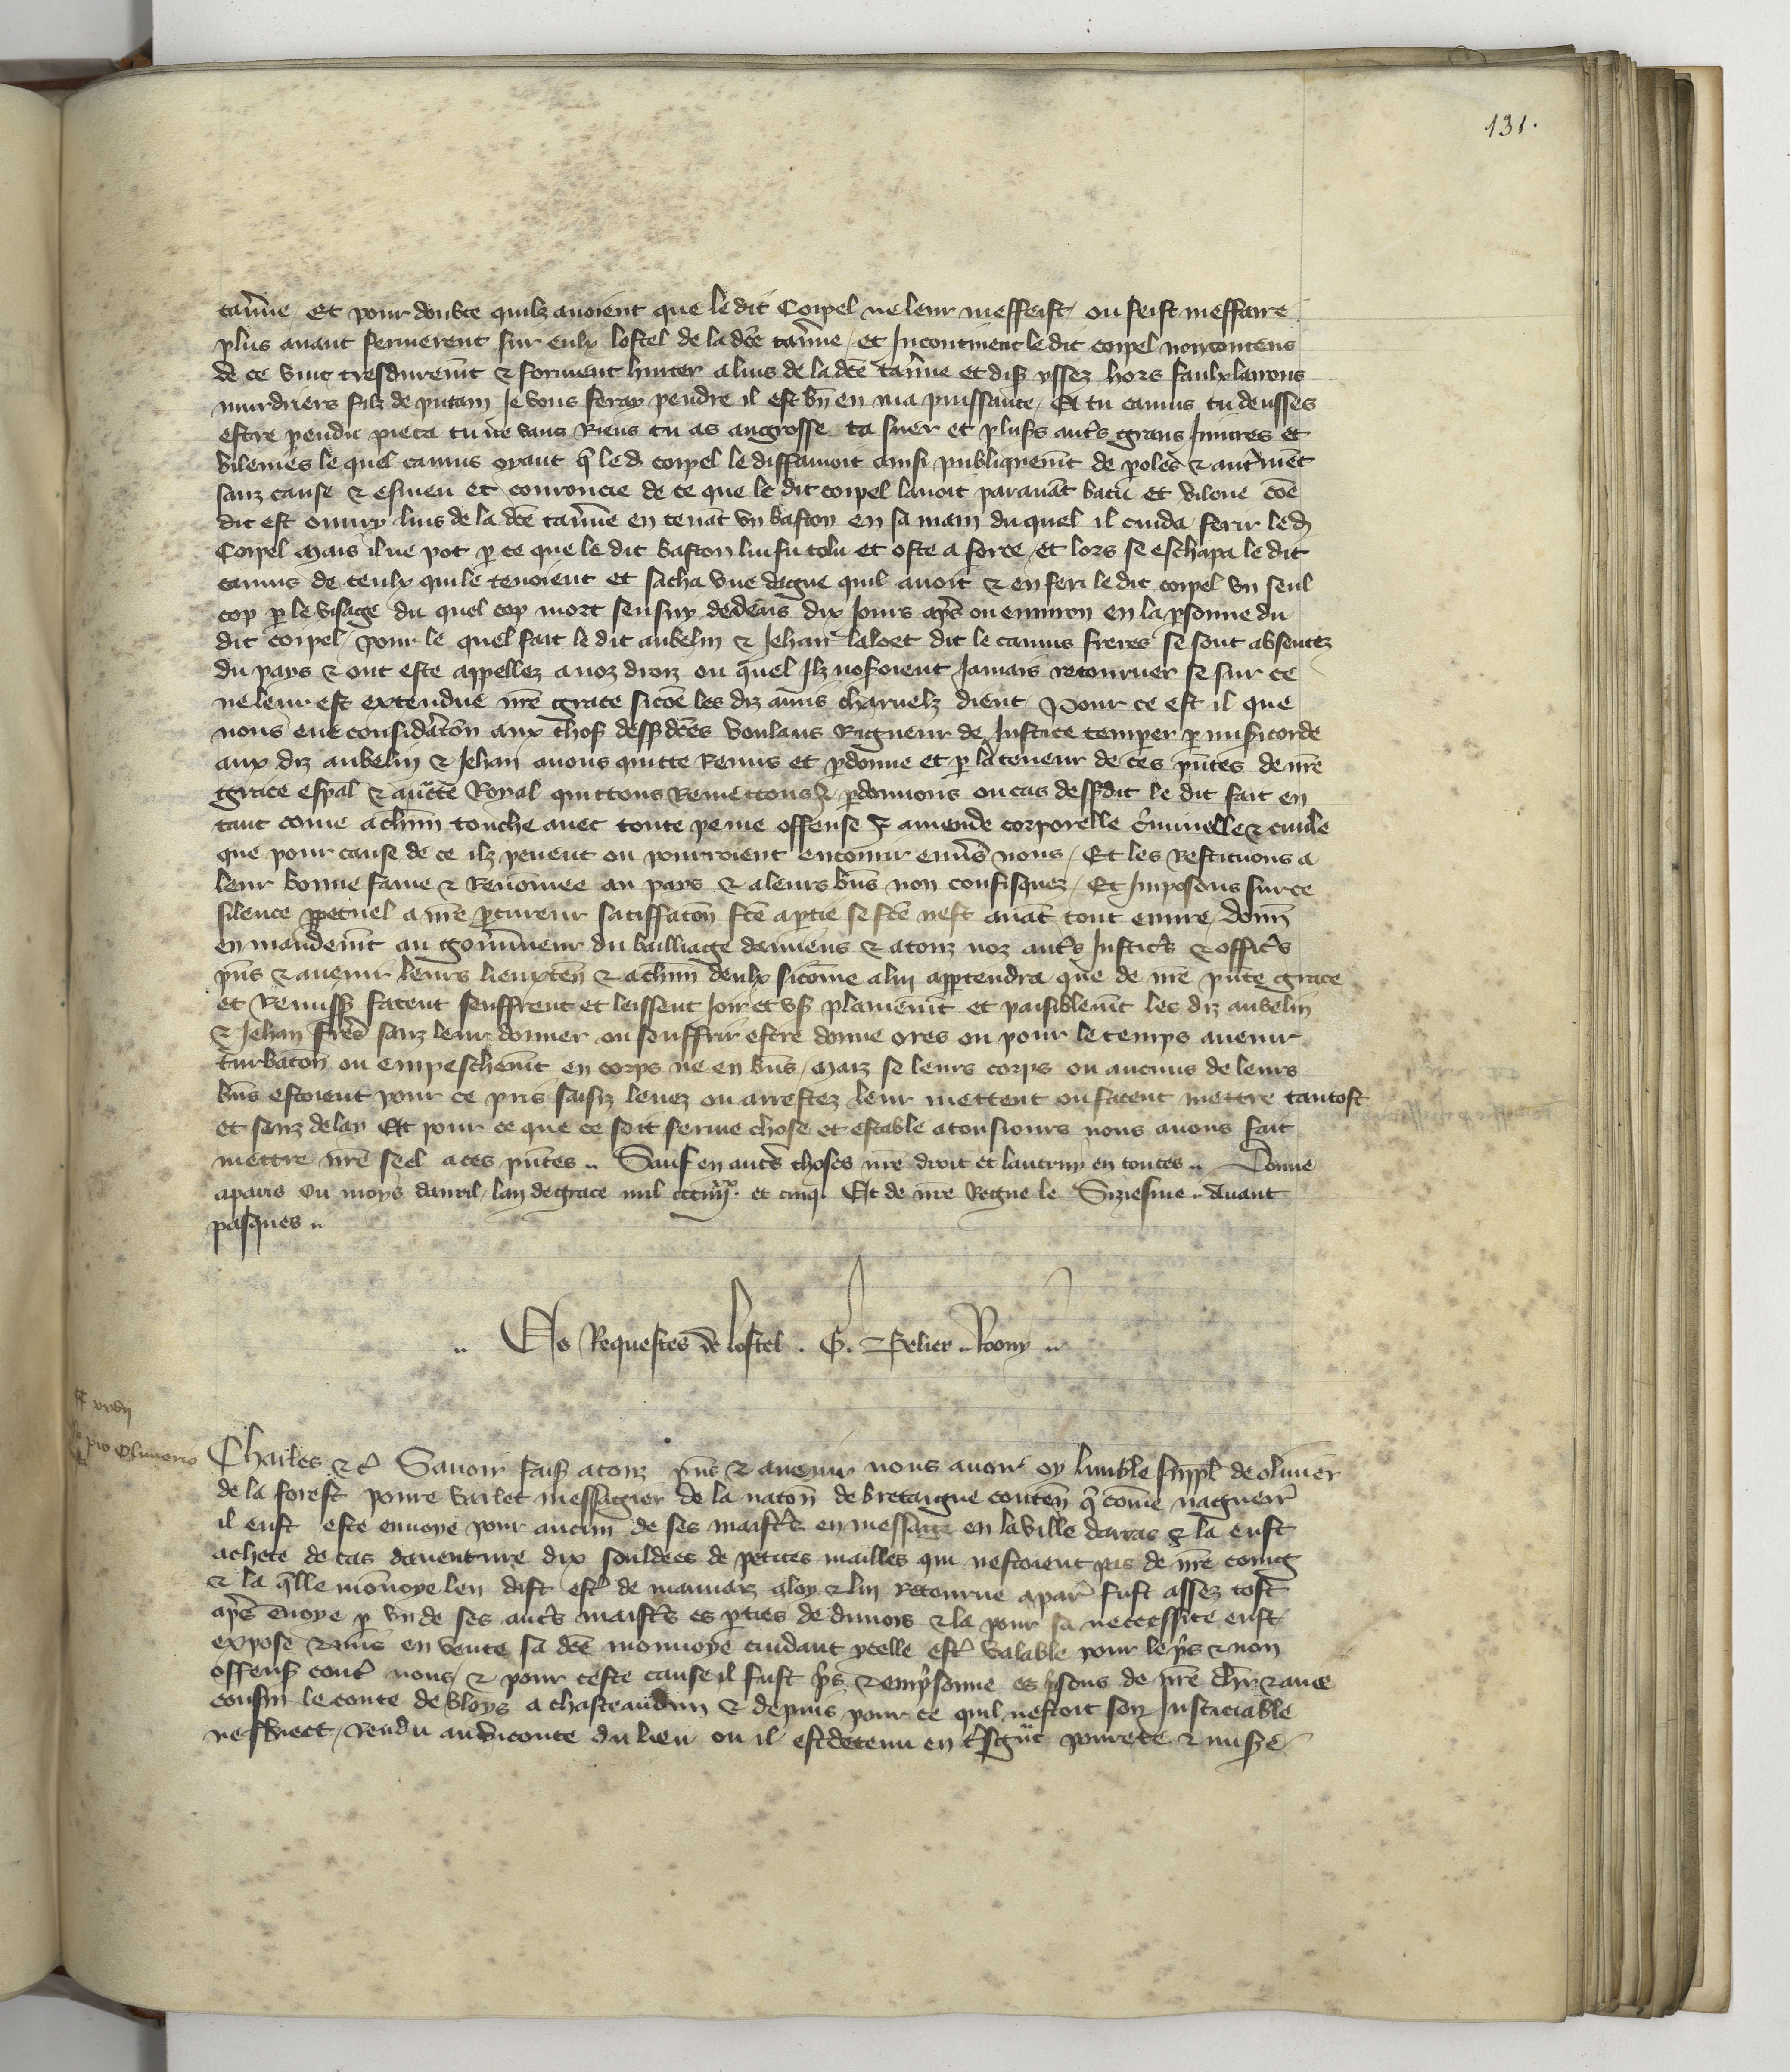 131.
tav̄ne / Et pour doubte quilz avoient que le dit Coipel ne leur meffeist / ou feist meffaire
plus avant fermerent sur eulx lostel de la dc̄e tav̄ne / et Incontinent le dit coipel non contens
de ce vint tresdurem̄t & forment hurter a luis de la dc̄e tav̄ne et dist yssez hors faulx larrons
murdriers filz de putain Je vous feray pendre il est bn̄ en ma puissance / Et tu camus tu deusses
estre pendu pieca tu ne vaus Riens tu as angrosse ta suer et plus's aut's grans Iniures et
vilenies le quel camus oyant q̄ le d. coipel le diffamoit ainsi publiquem̄t de p̄oles & aut'mēt
sanz cause & esmeu et courroucie de ce que le dit coipel lavoit paravāt batu et vilene cōe
dit est ouvry luis de la dc̄e tav̄ne en tenāt vn baston en sa main du quel il cuida ferir le d.
Coipel Mais il ne pot p̄ ce que le dit baston lui fu tolu et oste a force / et lors se eschapa le dit
camus de ceulx qui le tenoient et sacha vne dague quil avoit & en feri le dit coipel vn seul
cop p̄ le visage du quel cop mort sensuy dedens dix Jours ap̄s ou environ en la p̄sonne du
dit coipel / Pour le quel fait le dit aubelin & Jehan laloet dit le camus freres se sont absentez
du pays & ont este appellez a noz droiz ou quel Ilz nosoient Jamais retourner se sur ce
ne leur est extendue nr̄e grace sicōe les diz amis charnelz dient / Pour ce est il que
nous eue considerac̄on aux chos' dessusdc̄es voulans Rigueur de Justice temp̄er p̄ mis'icorde
aux diz aubelin & Jehan avons quitte Remis et p̄donne et p̄ la teneur de ces pn̄tes de nr̄e
grace esp̄al & auct̄e Royal quittons Remettons & p̄donnons ou cas dessusdit le dit fait en
tant come a chūn touche avec toute peine offense & amende corporelle c̄minelle & civile
que pour cause de ce ilz pevent ou pourroient encourir env's nous / Et les Restituons a
leur bonne fame & Renom̄ee au pays & a leurs bn̄s non confisquez / Et Imposons sur ce
silence pp̄etuel a nr̄e p̄cureur satiffac̄on fc̄e a p̄tie se fc̄e nest avāt tout euvre / Donn̄
en mandem̄t au gouv̄neur du bailliage damiens & a touz noz aut's Justic's & offic's
pn̄s & avenir leurs lieuxten̄ & a chūn deulx sicōme a lui app̄tendra que de nr̄e pn̄te grace
et Remiss' facent seuffrent et leissent Joir et us' plainem̄t et paisiblem̄t les diz aubelin
& Jehan frēs sanz leur donner ou souffrir estre donne ores ou pour le temps avenir
turbac̄on ou empeschem̄t en corps ne en bn̄s / Maiz se leurs corps ou aucuns de leurs
bn̄s estoient pour ce pris saisiz levez ou arrestez leur mettent ou facent mettre tantost
et sanz delay Et pour ce que ce soit ferme chose et estable a tousiours nous avons fait
mettre nr̄e seel a ces pn̄tes .. Sauf en aut's choses nr̄e droit et lautruy en toutes .. Donne
a paris ou moys davril / lan de grace mil ccc iiijxx. et cinq. Et de nr̄e Regne le Siziesme .. Avant
pasques ..
.. Es Requestes de lostel . G. Selier .. Rony ..
Charles &c̄ Savoir fais' a touz pn̄s & avenir nous avoir oy lumble suppl̄ de olivier
de la forest povre varlet messagier de la nac̄on de bretaigne conten̄ q̄ cōme naguerr'
il eust este envoye pour aucun de ses maist's en message en la ville darras & la eust
achete de cas daventure dix souldees de petites mailles qui nestoient pas de nr̄e coing
& la q̄lle mōnoye len dist est' de mauvaiz aloy & lui Retourne a par' fust assez tost
ap̄s ēvoye p̄ vn de ses aut's maist's es p̄ties de dunois & la pour sa necessite eust
expose & mis en vente sa dc̄e monnoye cuidant ycelle est' valable pour le p̄s & non
offens' cont' nous / & pour ceste cause il fust p̄s & emp̄sonne es p̄sons de nr̄e ch̄r & ame
cousin le conte de bloys a chasteaudun & depuis pour ce quil nestoit son Justiciable
ne subiect / rendu au viconte du lieu ou il est detenu en t'sgn̄t povrete & mis'e